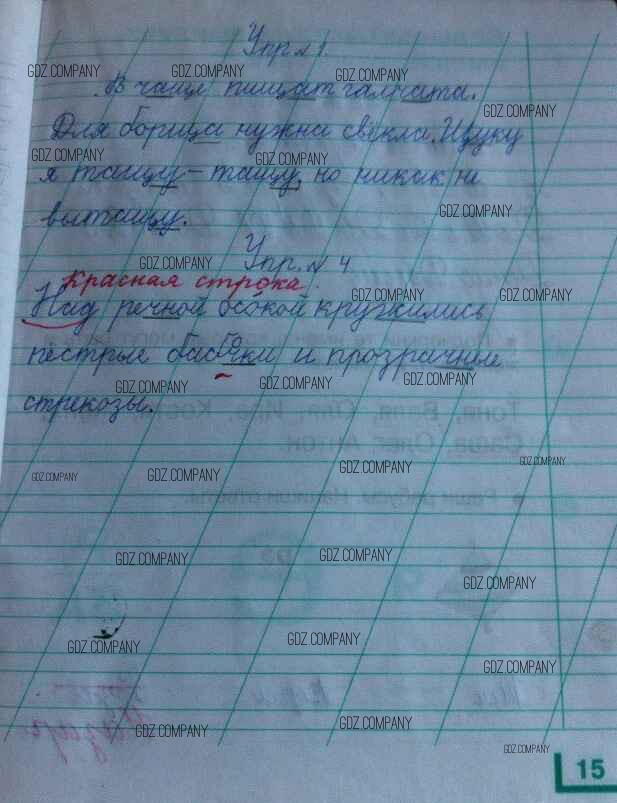 Упр №1.
В чаще пищат галчата.
Для борща нужна свёкла. Щуку
я тащу - тащу, но никак не
вытащу.
Упр. № 4
Красная строка.
Над речной осокой кружились
пёстрые бабочки и прозрачные
стрекозы.
GDZ.COMPANY
15